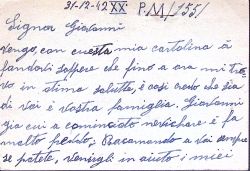 31-12-42 XX P.M/155/
Signor Giovanni
Vengo, con questa mia cartolina à
farvi sappere che fino a ora mi trovo
in otima salutte, è così credo che sia
di voi è vostra famiglia. Giovanni
gia cui a cominciato nevichare è fa
molto freddo,
se potete, venirgli in aiuto i miei